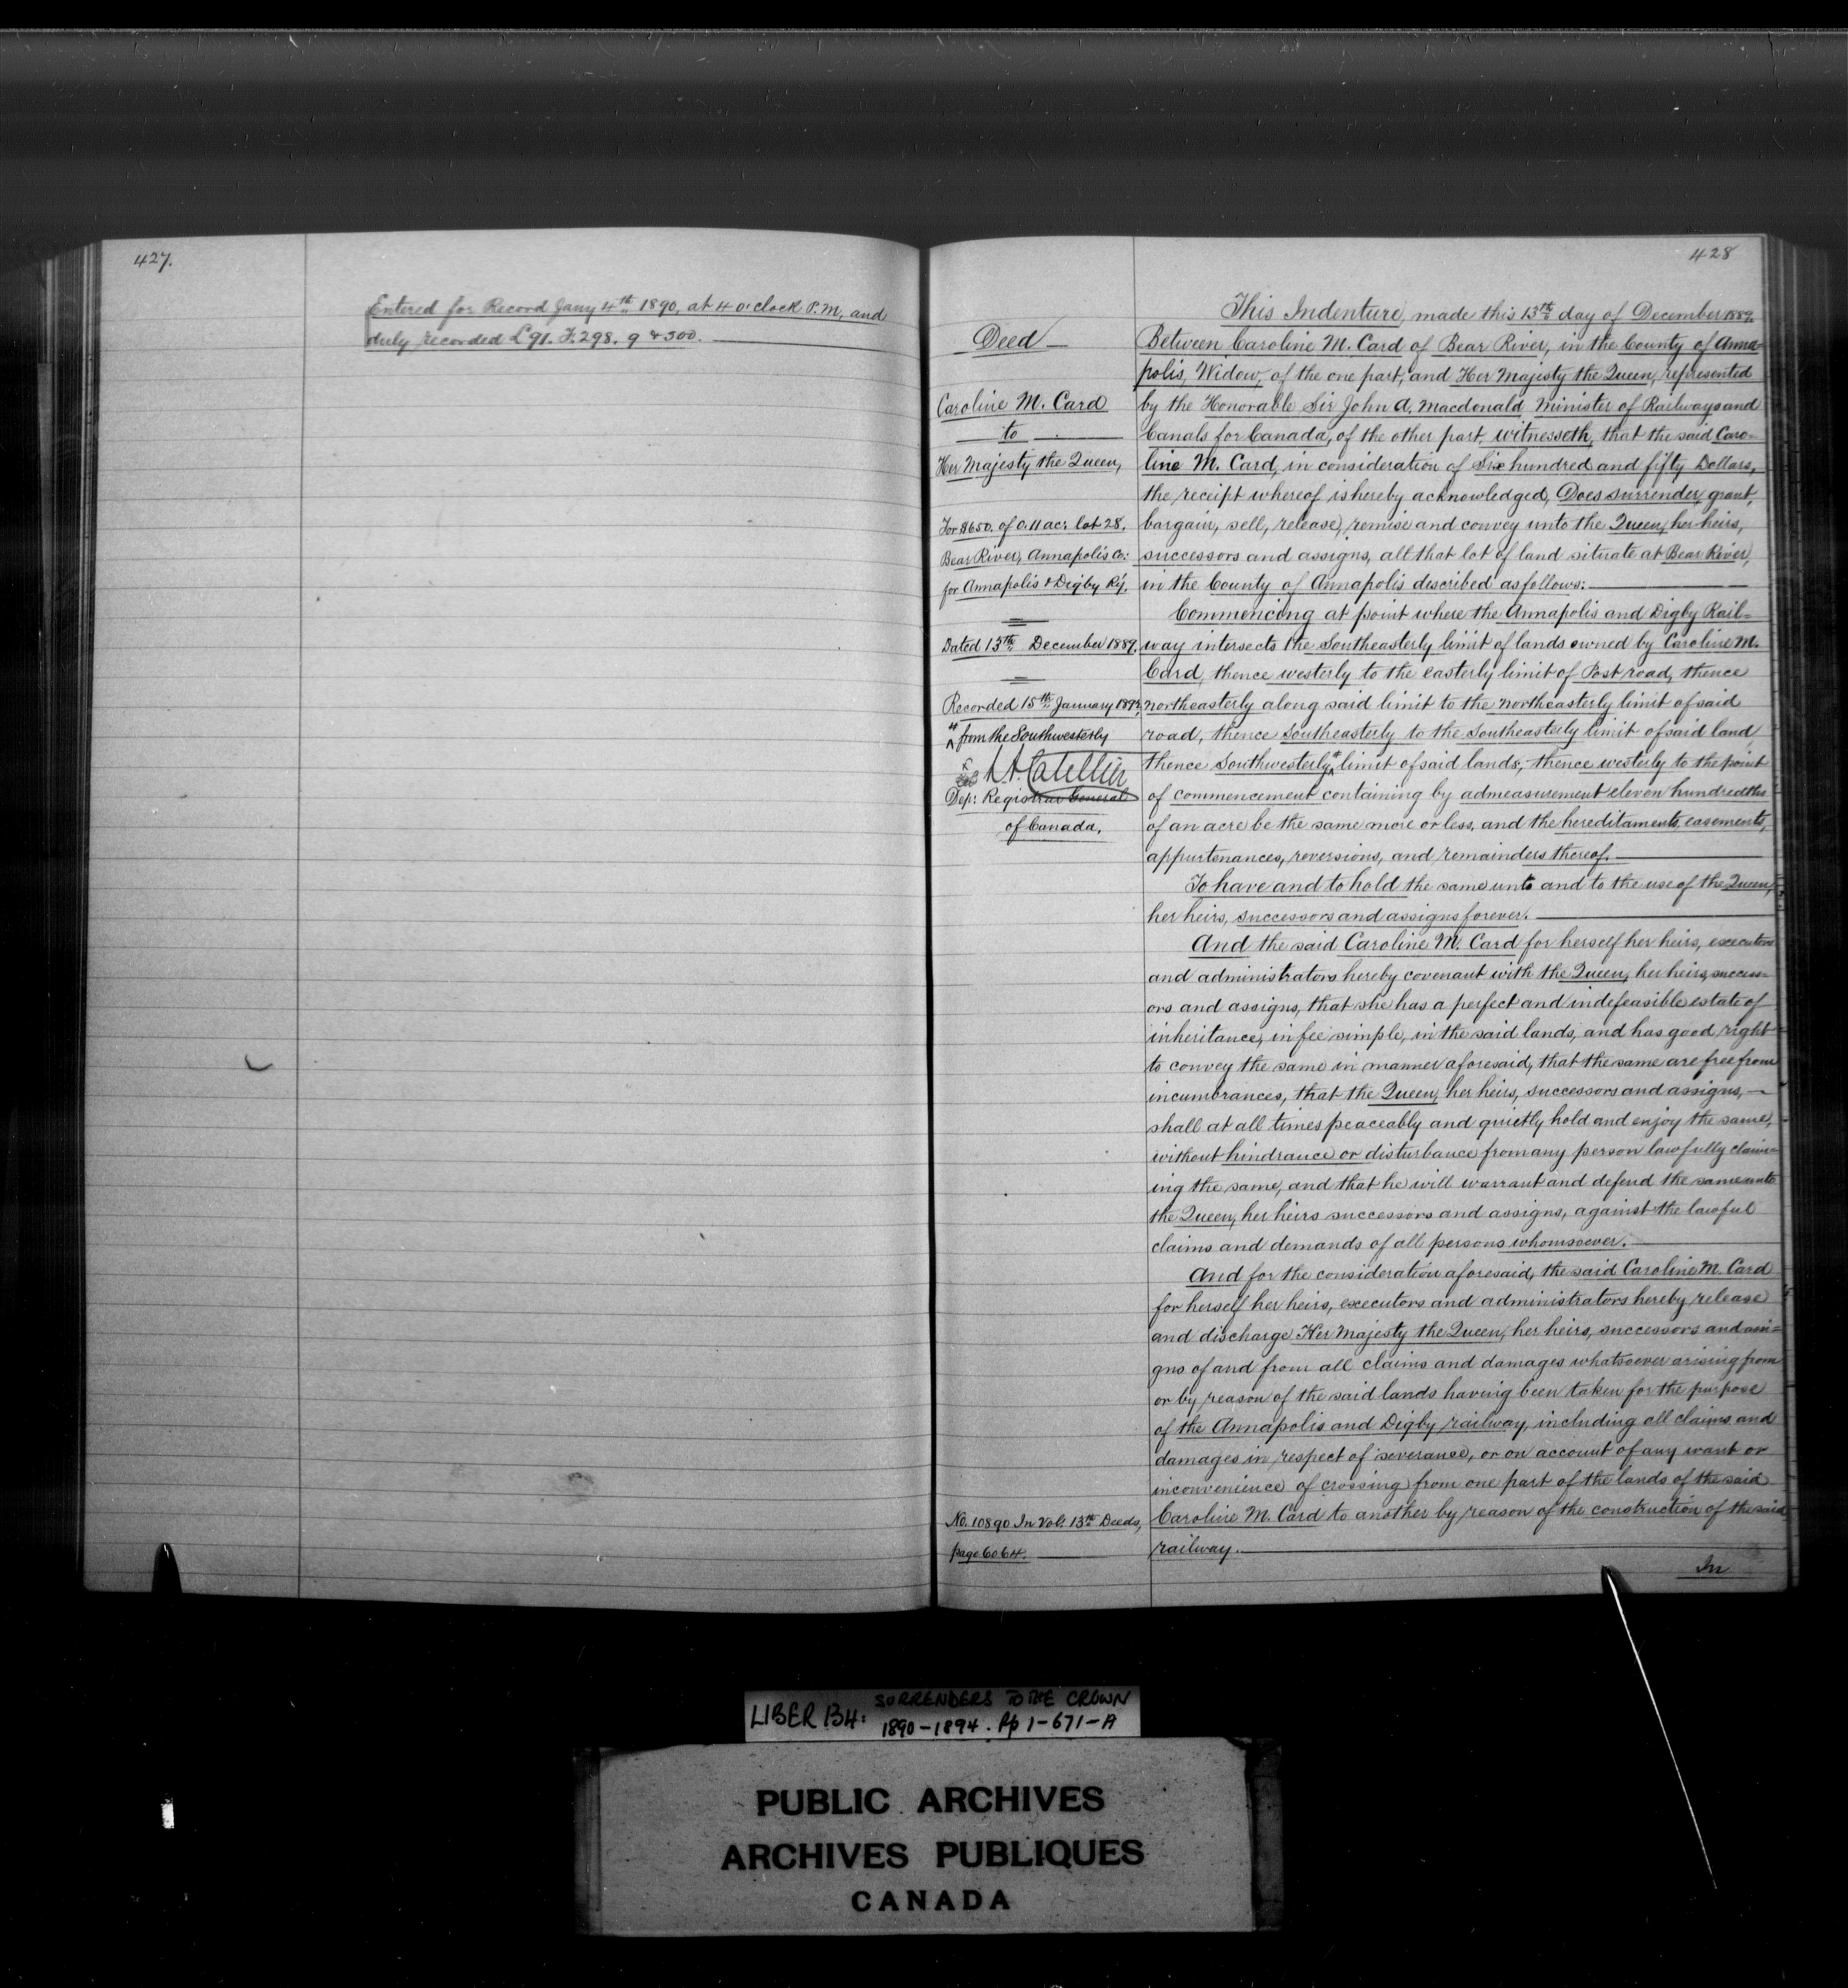 427.
Entered for Record Jany 4th 1890, at 4 o'clock P.M, and
duly recorded L 91. F. 298. 9 & 300.
428
Deed
Caroline M. Card
to
Her Majesty the Queen,
For $650. of 0.11 ac: lot 28,
Bear River, Annapolis Co:
for Annapolis & Digby Ry.
Dated 13th December 1889.
Recorded 15th January 1892,
from the Southwesterly
L. A. Catellier
Dep: Registrar General
of Canada.
No. 10890 In Vol. 13th Deeds,
page 6064.
This Indenture, made this 13th day of December 1889.
Between Caroline M. Card of Bear River, in the County of Anna=
polis, Widow, of the one part, and Her Majesty the Queen, represented
by the Honorable Sir John A. Macdonald, Minister of Railways and
Canals for Canada, of the other part, witnesseth, that the said Caro-
line M. Card, in consideration of Six hundred and fifty Dollars,
the receipt whereof is hereby acknowledged, Does surrender, grant,
bargain, sell, release, remise and convey unto the Queen, her heirs,
successors and assigns, all that lot of land situate at Bear River,
in the County of Annapolis described as follows:
Commencing at point where the Annapolis and Digby Rail=
way intersects the Southeasterly limit of lands owned by Caroline M.
Card, thence westerly to the easterly limit of Post road, thence
northeasterly along said limit to the northeasterly limit of said
road, thence Southeasterly to the Southeasterly limit of said land,
thence Southwesterly limit of said lands, thence westerly to the point
of commencement containing by admeasurement eleven hundredths
of an acre be the same more or less, and the hereditaments, easements,
appurtenances, reversions, and remainders thereof.
To have and to hold the same unto and to the use of the Queen,
her heirs, successors and assigns forever.
And the said Caroline M. Card for herself her heirs, executors
and administrators hereby covenant with the Queen, her heirs, success-
ors and assigns, that she has a perfect and indefeasible estate of
inheritance, in fee simple, in the said lands, and has good right
to convey the same in manner aforesaid, that the same are free from
incumbrances, that the Queen, her heirs, successors and assigns,
shall at all times peaceably and quietly hold and enjoy the same,
without hindrance or disturbance from any person lawfully claim-
ing the same, and that he will warrant and defend the same unto
the Queen, her heirs successors and assigns, against the lawful
claims and demands of all persons whomsoever.
And for the consideration aforesaid, the said Caroline M. Card
for herself her heirs, executors and administrators hereby release
and discharge Her Majesty the Queen, her heirs, successors and assi=
gns of and from all claims and damages whatsoever arising from
or by reason of the said lands having been taken for the purpose
of the Annapolis and Digby railway, including all claims and
damages in respect of severance, or on account of any want or
inconvenience of crossing from one part of the lands of the said
Caroline M. Card to another by reason of the construction of the said
railway.
In
LIBER 134: SURRENDERS TO THE CROWN
1890-1894. Pp 1-671-A
PUBLIC ARCHIVES
ARCHIVES PUBLIQUES
CANADA